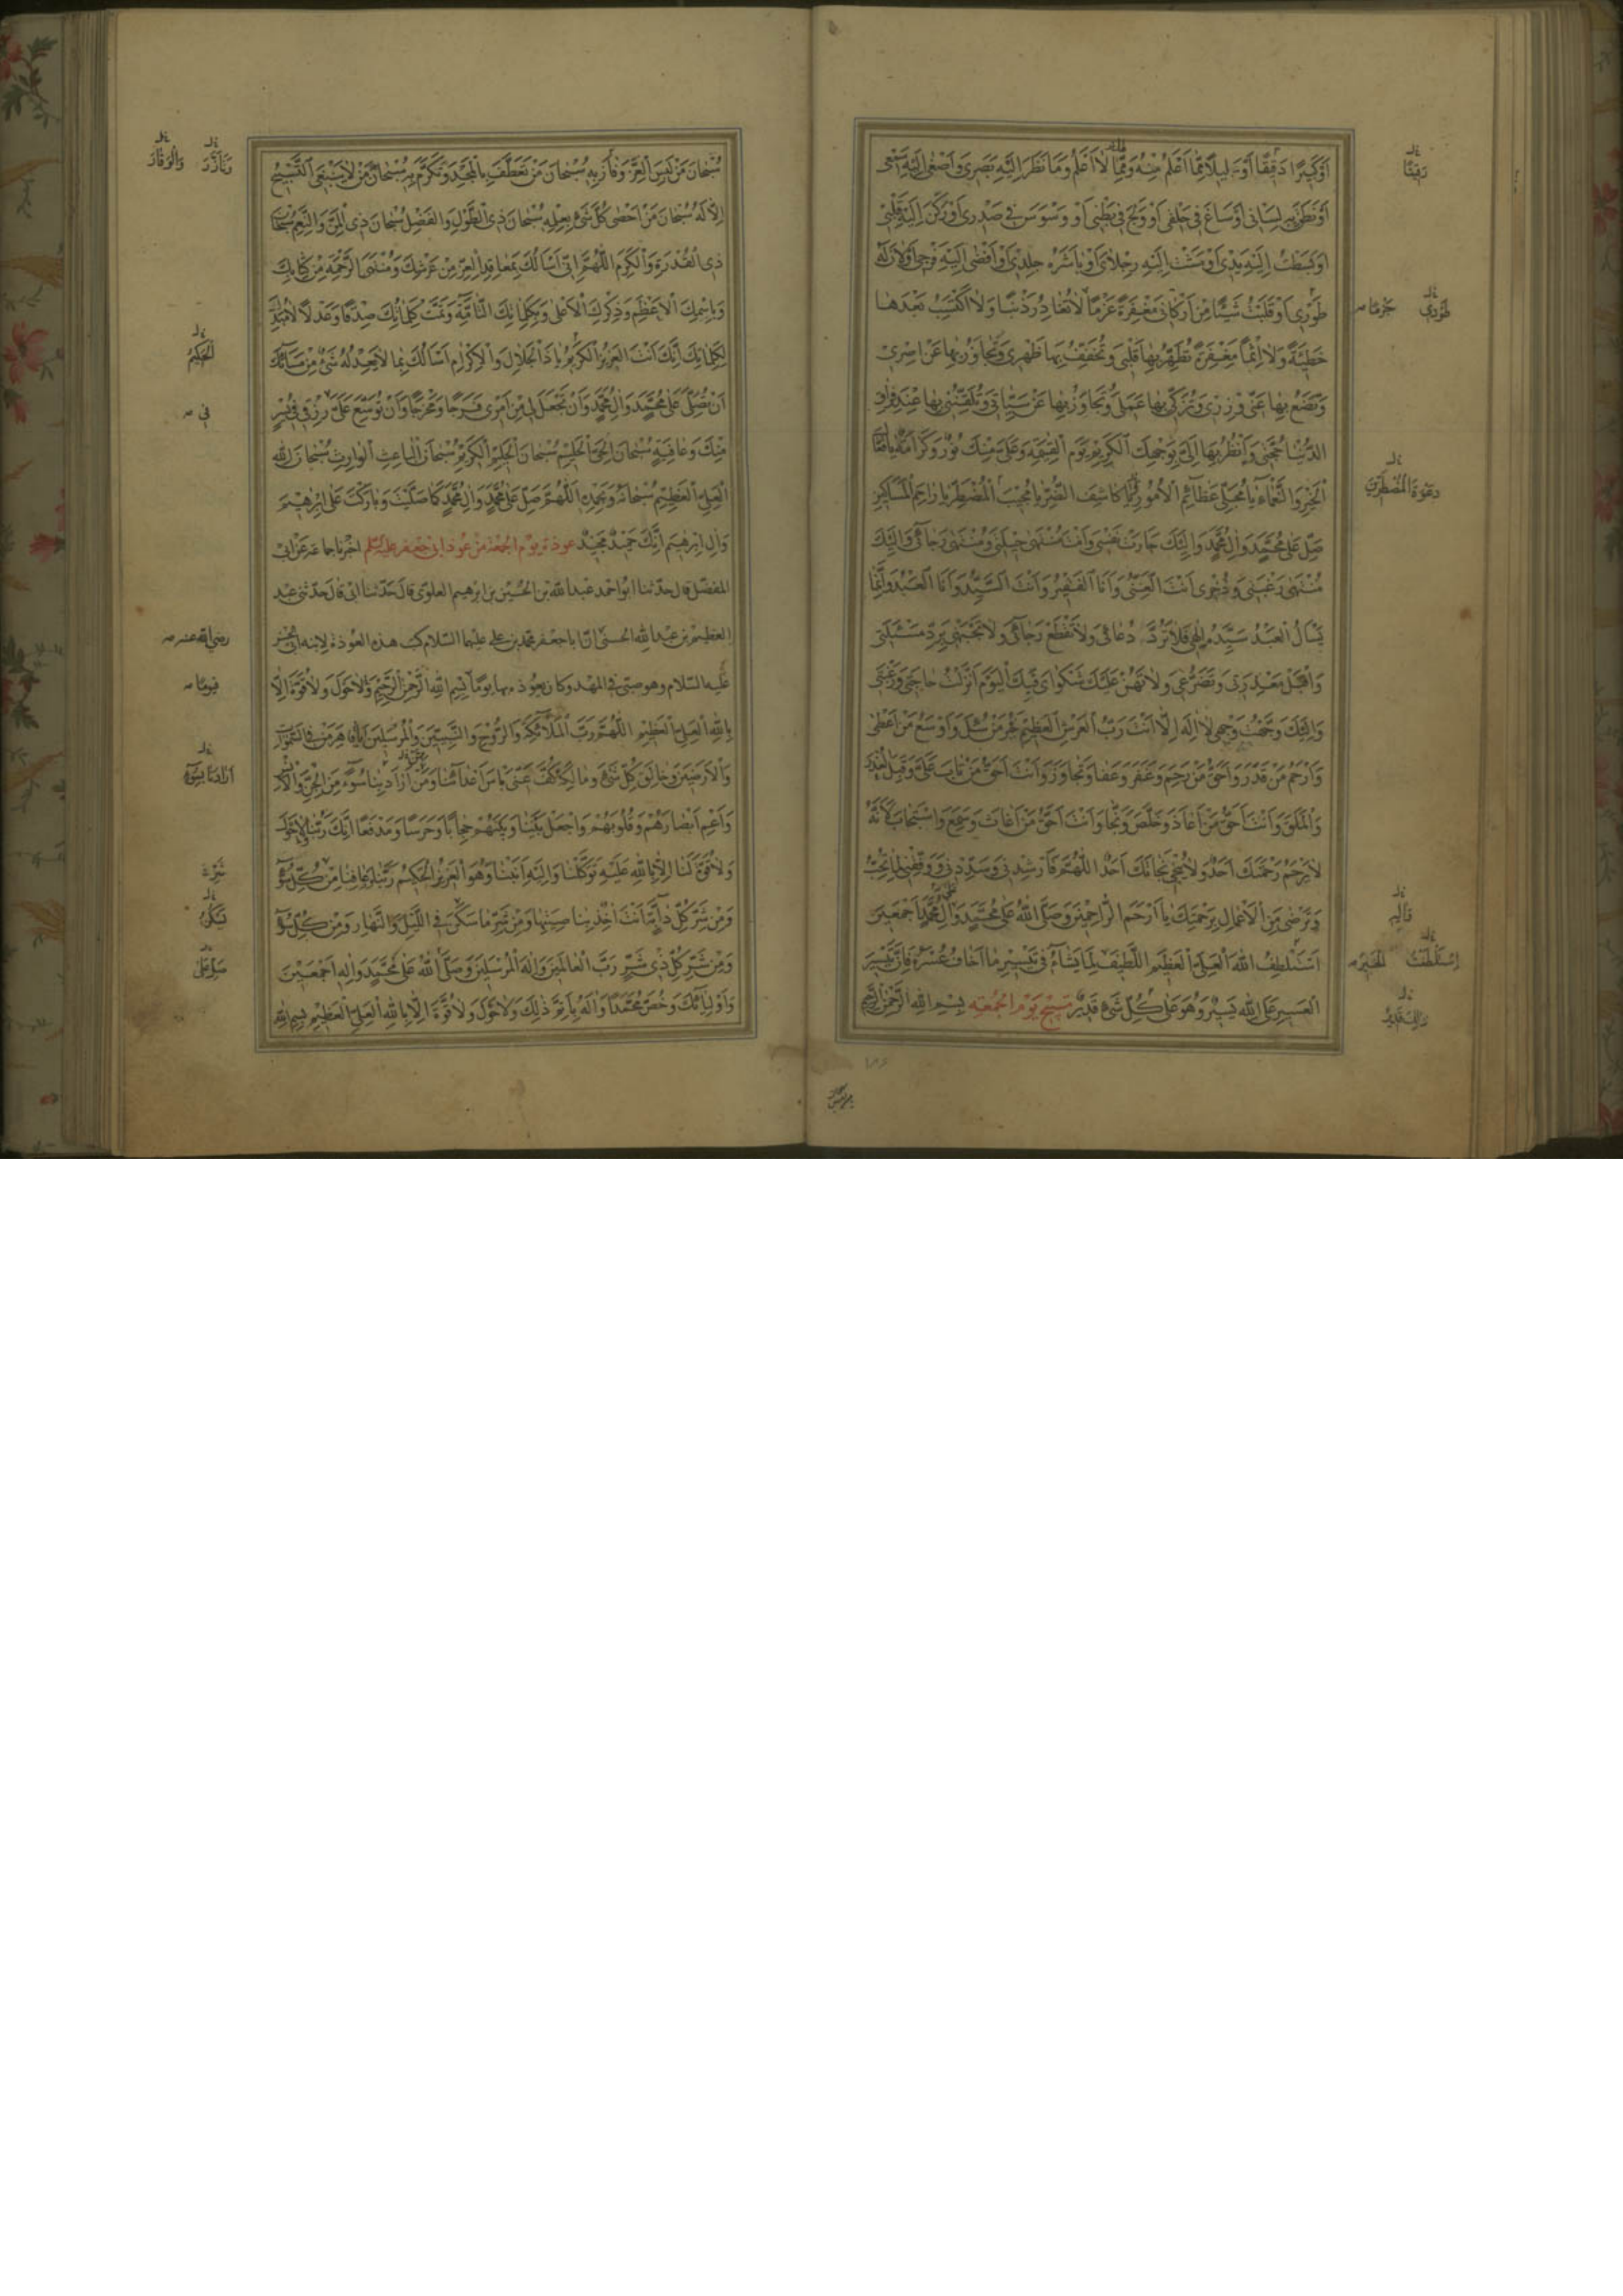 أَوْ كَبِيرًا دَقِيقًا أَوْ جَلِيلًا مِمَّا أَعْلَمُ مِنْهُ وَمِمَّا لَا أَعْلَمُ وَمَا نَظَرَ إِلَيْهِ بَصَرِي وَأَصْغَى إِلَيْهِ سَمْعِي
أَوْ نَطَقَ بِهِ لِسَانِي أَوْ سَاغَ فِي حَلْقِي أَوْ وَلَجَ فِي بَطْنِي أَوْ وَسْوَسَ فِي صَدْرِي أَوْ رَكَنَ إِلَيْهِ قَلْبِي
أَوْ بَسَطْتُ إِلَيْهِ يَدِي أَوْ مَشَتْ إِلَيْهِ رِجْلَايَ أَوْ بَاشَرَهُ جِلْدِي أَوْ أَفْضَى إِلَيْهِ فَرْجِي أَوْ لَانَ لَهُ
طَوْرِي أَوْ قَلَبْتُ شَيْئًا مِنْ أَرْكَانِي مَغْفِرَةً عَزْمًا لَا تُغَادِرُ ذَنْبًا وَلَا أَكْتَسِبُ بَعْدَهَا
خَطِيئَةً وَلَا إِثْمًا مَغْفِرَةً تُطَهِّرُ بِهَا قَلْبِي وَتُخَفِّفُ بِهَا ظَهْرِي وَتُجَاوِزُ بِهَا عَنْ إِصْرِي
وَتَضَعُ بِهَا عَنِّي وِزْرِي وَتُزَكِّي بِهَا عَمَلِي وَتَجَاوَزُ بِهَا عَنْ سَيِّئَاتِي وَتُلَقِّنُنِي بِهَا عِنْدَ فِرَاقِ
الدُّنْيَا حُجَّتِي وَأَنْظُرُ بِهَا إِلَى وَجْهِكَ الْكَرِيمِ يَوْمَ الْقِيٰمَةِ وَعَلَيَّ مِنْكَ نُورٌ وَكَرَامَةٌ
الْخَيْرِ وَالنَّعْمَاءِ يَا مُجَلِّيَ عَظَائِمِ الْأُمُورِ يَا كَاشِفَ الضُّرِّ يَا مُجِيبَ الْمُضْطَرِّ يَا رَاحِمَ الْمَسَاكِينِ
صَلِّ عَلَى مُحَمَّدٍ وَآلِ مُحَمَّدٍ وَإِلَيْكَ جَارَتْ نَفْسِي وَأَنْتَ مُنْتَهَى حِيلَتِي وَمُنْتَهَى رَجَائِي وَإِلَيْكَ
مُنْتَهَى رَغْبَتِي وَذُخْرِي أَنْتَ الْغَنِيُّ وَأَنَا الْفَقِيرُ وَأَنْتَ السَّيِّدُ وَأَنَا الْعَبْدُ وَإِنَّمَا
يَسْأَلُ الْعَبْدُ سَيِّدَهُ إِلٰهِي فَلَا تَرُدَّ دُعَائِي وَلَا تَقْطَعْ رَجَائِي وَلَا تَجْبَهْنِي بِرَدِّ مَسْئَلَتِي
وَاقْبَلْ مَعْذِرَتِي وَتَضَرُّعِي وَلَا تَهُنْ عَلَيْكَ شَكْوَايَ فَبِكَ الْيَوْمَ أَنْزَلْتُ حَاجَتِي وَرَغْبَتِي
وَإِلَيْكَ وَجَّهْتُ وَجْهِي لَا إِلٰهَ إِلَّا أَنْتَ رَبُّ الْعَرْشِ الْعَظِيمِ خَيْرُ مَنْ سُئِلَ وَأَوْسَعُ مَنْ أَعْطَى
وَأَرْحَمُ مَنْ قَدَرَ وَأَحَقُّ مَنْ رَحِمَ وَغَفَرَ وَعَفَا وَتَجَاوَزَ وَأَنْتَ أَحَقُّ مَنْ تَابَ عَلَيَّ وَقَبِلَ الْعُذْرَ
وَالْمَلَقَ وَأَنْتَ أَحَقُّ مَنْ أَعَاذَ وَخَلَّصَ وَنَجَّا وَأَنْتَ أَحَقُّ مَنْ أَغَاثَ وَسَمِعَ وَاسْتَجَابَ لِأَنَّهُ
لَا يَرْحَمُ رَحْمَتَكَ أَحَدٌ وَلَا يُنْجِي نَجَاتَكَ أَحَدٌ اللّٰهُمَّ فَأَرْشِدْنِي وَسَدِّدْنِي وَوَفِّقْنِي لِمَا تُحِبُّ
وَتَرْضَى مِنَ الْأَعْمَالِ بِرَحْمَتِكَ يَا أَرْحَمَ الرَّاحِمِينَ وَصَلَّى اللّٰهُ عَلَى مُحَمَّدٍ وَآلِ مُحَمَّدٍ أَجْمَعِينَ
أَسْتَلْطِفُ اللّٰهَ الْعَلِيَّ الْعَظِيمَ اللَّطِيفَ لِمَا يَشَاءُ فِي تَيْسِيرِ مَا أَخَافُ عُسْرَهُ فَإِنَّ تَيْسِيرَ
الْعَسِيرِ عَلَى اللّٰهِ يَسِيرٌ وَهُوَ عَلَى كُلِّ شَيْءٍ قَدِيرٌ تَسْبِيحُ يَوْمِ الْجُمُعَةِ بِسْمِ اللّٰهِ الرَّحْمٰنِ الرَّحِيمِ
طَوْرِي
جُرْمًا
دَعْوَةَ الْمُضْطَرِّينَ
وَآلِهِ
اِسْتَلْطَفْتُ
الْخَبِيرَ
١٨٦
سُبْحَانَ مَنْ لَبِسَ الْعِزَّ وَفَازَ بِهِ سُبْحَانَ مَنْ تَعَطَّفَ بِالْمَجْدِ وَتَكَرَّمَ بِهِ سُبْحَانَ مَنْ لَا يَنْبَغِي التَّسْبِيحُ
إِلَّا لَهُ سُبْحَانَ مَنْ أَحْصَى كُلَّ شَيْءٍ بِعِلْمِهِ سُبْحَانَ ذِي الطَّوْلِ وَالْفَضْلِ سُبْحَانَ ذِي الْمَنِّ وَالنِّعَمِ سُبْحَانَ
ذِي الْقُدْرَةِ وَالْكَرَمِ اللّٰهُمَّ إِنِّي أَسْأَلُكَ بِمَعَاقِدِ الْعِزِّ مِنْ عَرْشِكَ وَمُنْتَهَى الرَّحْمَةِ مِنْ كِتَابِكَ
وَبِاسْمِكَ الْأَعْظَمِ وَذِكْرِكَ الْأَعْلَى وَبِكَلِمَاتِكَ التَّامَّةِ وَتَمَّتْ كَلِمَاتُكَ صِدْقًا وَعَدْلًا لَا مُبَدِّلَ
لِكَلِمَاتِكَ إِنَّكَ أَنْتَ الْعَزِيزُ الْكَرِيمُ يَا ذَا الْجَلَالِ وَالْإِكْرَامِ أَسْأَلُكَ بِمَا لَا يَعْدِلُهُ شَيْءٌ مِنْ مَسَائِلِكَ
أَنْ تُصَلِّيَ عَلَى مُحَمَّدٍ وَآلِ مُحَمَّدٍ وَأَنْ تَجْعَلَ لِي مِنْ أَمْرِي فَرَجًا وَمَخْرَجًا وَأَنْ تُوَسِّعَ عَلَيَّ رِزْقِي فِي يُسْرٍ
مِنْكَ وَعَافِيَةٍ سُبْحَانَ الْحَيِّ الْحَلِيمِ سُبْحَانَ الْحَلِيمِ الْكَرِيمِ سُبْحَانَ الْبَاعِثِ الْوَارِثِ سُبْحَانَ اللّٰهِ
الْعَلِيِّ الْعَظِيمِ سُبْحَانَهُ وَبِحَمْدِهِ اللّٰهُمَّ صَلِّ عَلَى مُحَمَّدٍ وَآلِ مُحَمَّدٍ كَمَا صَلَّيْتَ وَبَارَكْتَ عَلَى إِبْرٰهِيمَ
وَآلِ إِبْرٰهِيمَ إِنَّكَ حَمِيدٌ مَجِيدٌ عوذة يوم الجمعة من عوذ ابي جعفر عليه السلم اخبرنا جماعة عن ابي
المفضل قال حدثنا ابو احمد عبد الله بن الحسين بن ابرهيم العلوي قال حدثنا ابي قال حدثني عبد
العظيم بن عبد الله الحسني ان ابا جعفر محمد بن علي عليهما السلام كتب هذه العوذة لابنه ابي الحسن
عليه السلام وهو صبي في المهد وكان يعوذه بها يوما بِسْمِ اللّٰهِ الرَّحْمٰنِ الرَّحِيمِ وَلَا حَوْلَ وَلَا قُوَّةَ إِلَّا
بِاللّٰهِ الْعَلِيِّ الْعَظِيمِ اللّٰهُمَّ رَبَّ الْمَلَائِكَةِ وَالرُّوحِ وَالنَّبِيِّينَ وَالْمُرْسَلِينَ وَقَاهِرَ مَنْ فِي السَّمٰوَاتِ
وَالْأَرَضِينَ وَخَالِقَ كُلِّ شَيْءٍ وَمَالِكَهُ كُفَّ عَنِّي بَأْسَ أَعْدَائِنَا وَمَنْ أَرَادَ بِنَا سُوءًا مِنَ الْجِنِّ وَالْإِنْسِ
وَأَعْمِ أَبْصَارَهُمْ وَقُلُوبَهُمْ وَاجْعَلْ بَيْنَنَا وَبَيْنَهُمْ حِجَابًا وَحَرَسًا وَمَدْفَعًا إِنَّكَ رَبُّنَا لَا حَوْلَ
وَلَا قُوَّةَ لَنَا إِلَّا بِاللّٰهِ عَلَيْهِ تَوَكَّلْنَا وَإِلَيْهِ أَنَبْنَا وَهُوَ الْعَزِيزُ الْحَكِيمُ رَبَّنَا وَعَافِنَا مِنْ كُلِّ سُوءٍ
وَمِنْ شَرِّ كُلِّ دَابَّةٍ أَنْتَ آخِذٌ بِنَاصِيَتِهَا وَمِنْ شَرِّ مَا سَكَنَ فِي اللَّيْلِ وَالنَّهَارِ وَمِنْ كُلِّ سُوءٍ
وَمِنْ شَرِّ كُلِّ ذِي شَرٍّ رَبَّ الْعَالَمِينَ وَإِلٰهَ الْمُرْسَلِينَ وَصَلَّى اللّٰهُ عَلَى مُحَمَّدٍ وَآلِهِ أَجْمَعِينَ
وَأَوْلِيَائِكَ وَخُصَّ مُحَمَّدًا وَآلَهُ بِأَتَمِّ ذٰلِكَ وَلَا حَوْلَ وَلَا قُوَّةَ إِلَّا بِاللّٰهِ الْعَلِيِّ الْعَظِيمِ بِسْمِ اللّٰهِ
وَتَأَزَّرَ
وَالْوَقَارَ
الْحَكِيمُ
في
رضي الله عنه
فيوما
يَسْكُنُ
صَلِّ عَلَى